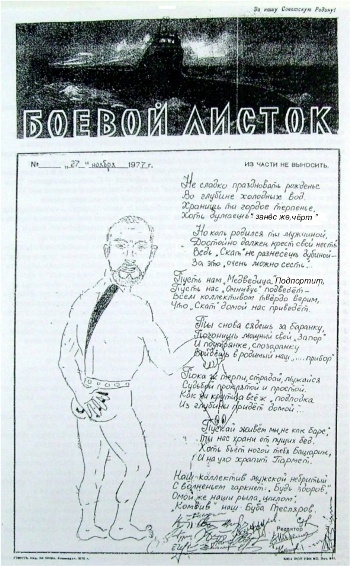 За нашу Советскую Родину!
БОЕВОЙ ЛИСТОК
№ "27" ноября 1977 г. ИЗ ЧАСТИ НЕ ВЫНОСИТЬ.
Не сладко праздновать рожденье
Во глубине холодных вод.
Хранишь ты гордое терпенье,
Хоть думаешь "занёс же, чёрт"
Но коль родился ты мужчиной,
Достойно должен крест свой несть
Ведь "Скат" не разнесешь дубиной -
За это, очень можно сесть!
Пусть нам, Медведица, Подпортит,
Пусть нас "Омнибус" подведёт -
Всем коллективом твёрдо верим,
Что "Скат" домой нас приведет.
Ты снова сядешь за баранку,
Погонишь мощный свой "Запор"
И поутрянке, спозаранку
Войдёшь в родимый наш "....прибор"
Пока ж терпи, страдай, мужайся
Судьбой проклятой и простой.
Как ни крутись всё ж, подлодка
Из глубины придёт домой!..
Пускай живём мы не как баре,
Ты нас храни от пущих бед.
Хоть бьёт ногой тебя Башарин,
И на ухо храпит Пармет.
Наш коллектив мужской небритый
С волненьем гаркнет: "Будь здоров"
Омой же наши рыла, милой,
"Комдив" наш Буба Тесляров.
Редактор